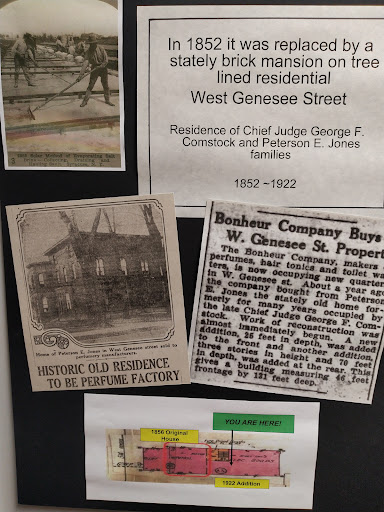 In 1852 it was replaced by a
stately brick mansion on tree
lined residential
West Genesee Street
Residence of Chief Judge George F.
Comstock and Peterson E. Jones
families
1852 ~1922
Home of Peterson E. Jones in West Genesee street sold to
perfumery manufacturers.
HISTORIC OLD RESIDENCE
TO BE PERFUME FACTORY
Bonheur Company Buys
W. Genesee St. Propert
The Bonheur Company, makers
perfumes, hair tonics and toilet wa
ters, is now occupying new quarter
in W. Genesee st. About a year ag
the company bought from Peterson
E. Jones the stately old home for
merly for many years occupied by
the late Chief Judge George F. Com
stock. Work of reconstruction was
almost immediately begun. A new
addition, 25 feet in depth, was added
to the front and another addition,
three stories in height and 70 feet
in depth, was added at the rear. This
gives a building measuring 46 feet
frontage by 121 feet deep.
YOU ARE HERE!
1856 Original
House
1922 Addition